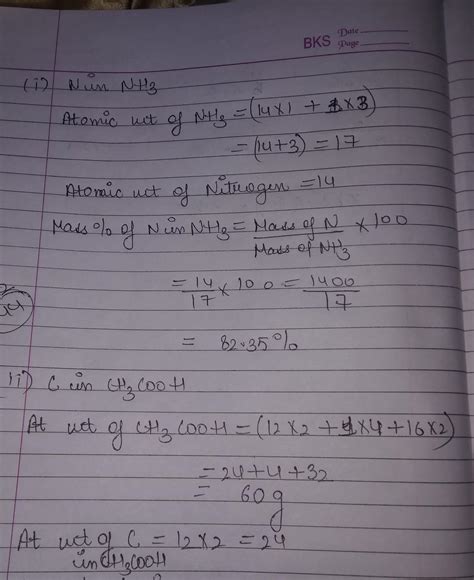 BKS Date
Page
(i) N in NH3
Atomic wt of NH3 = (14×1 + 1×3)
= (14+3) = 17
Atomic wt of Nitrogen = 14
Mass % of N in NH3 = Mass of N / Mass of NH3 × 100
= 14/17 × 100 = 1400/17
= 82.35%
ii) C in CH3COOH
At wt of CH3COOH = (12×2 + 1×4 + 16×2)
= 24+4+32
= 60g
At wt of C = 12×2 = 24
in CH3COOH